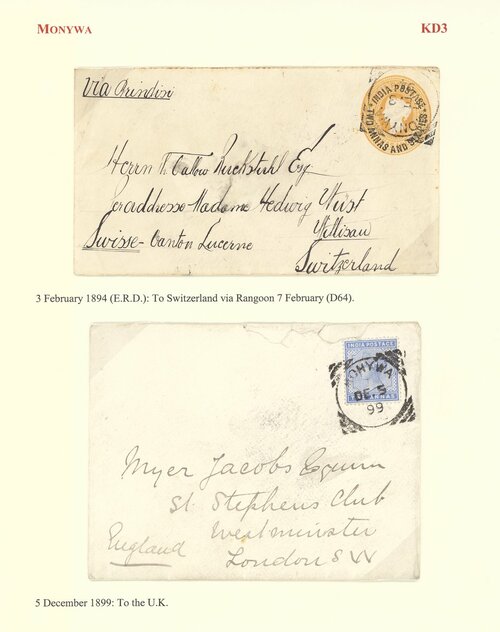 MONYWA
KD3
Via Brindisi
INDIA POSTAGE
TWO ANNAS AND SIX PIES
Herrn
Ruckstuhl Esq
Madame Hedwig Wüst
Willisau
Suisse - Canton Lucerne
Switzerland
3 February 1894 (E.R.D.): To Switzerland via Rangoon 7 February (D64).
INDIA POSTAGE
ANNAS
MONYWA
DE 5
99
Myer Jacobs Esquire
St Stephens Club
Westminster
England
London S W
5 December 1899: To the U.K.